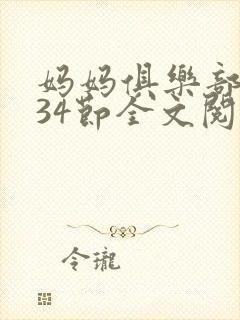 妈妈俱樂部
34節全文閱
令瓏